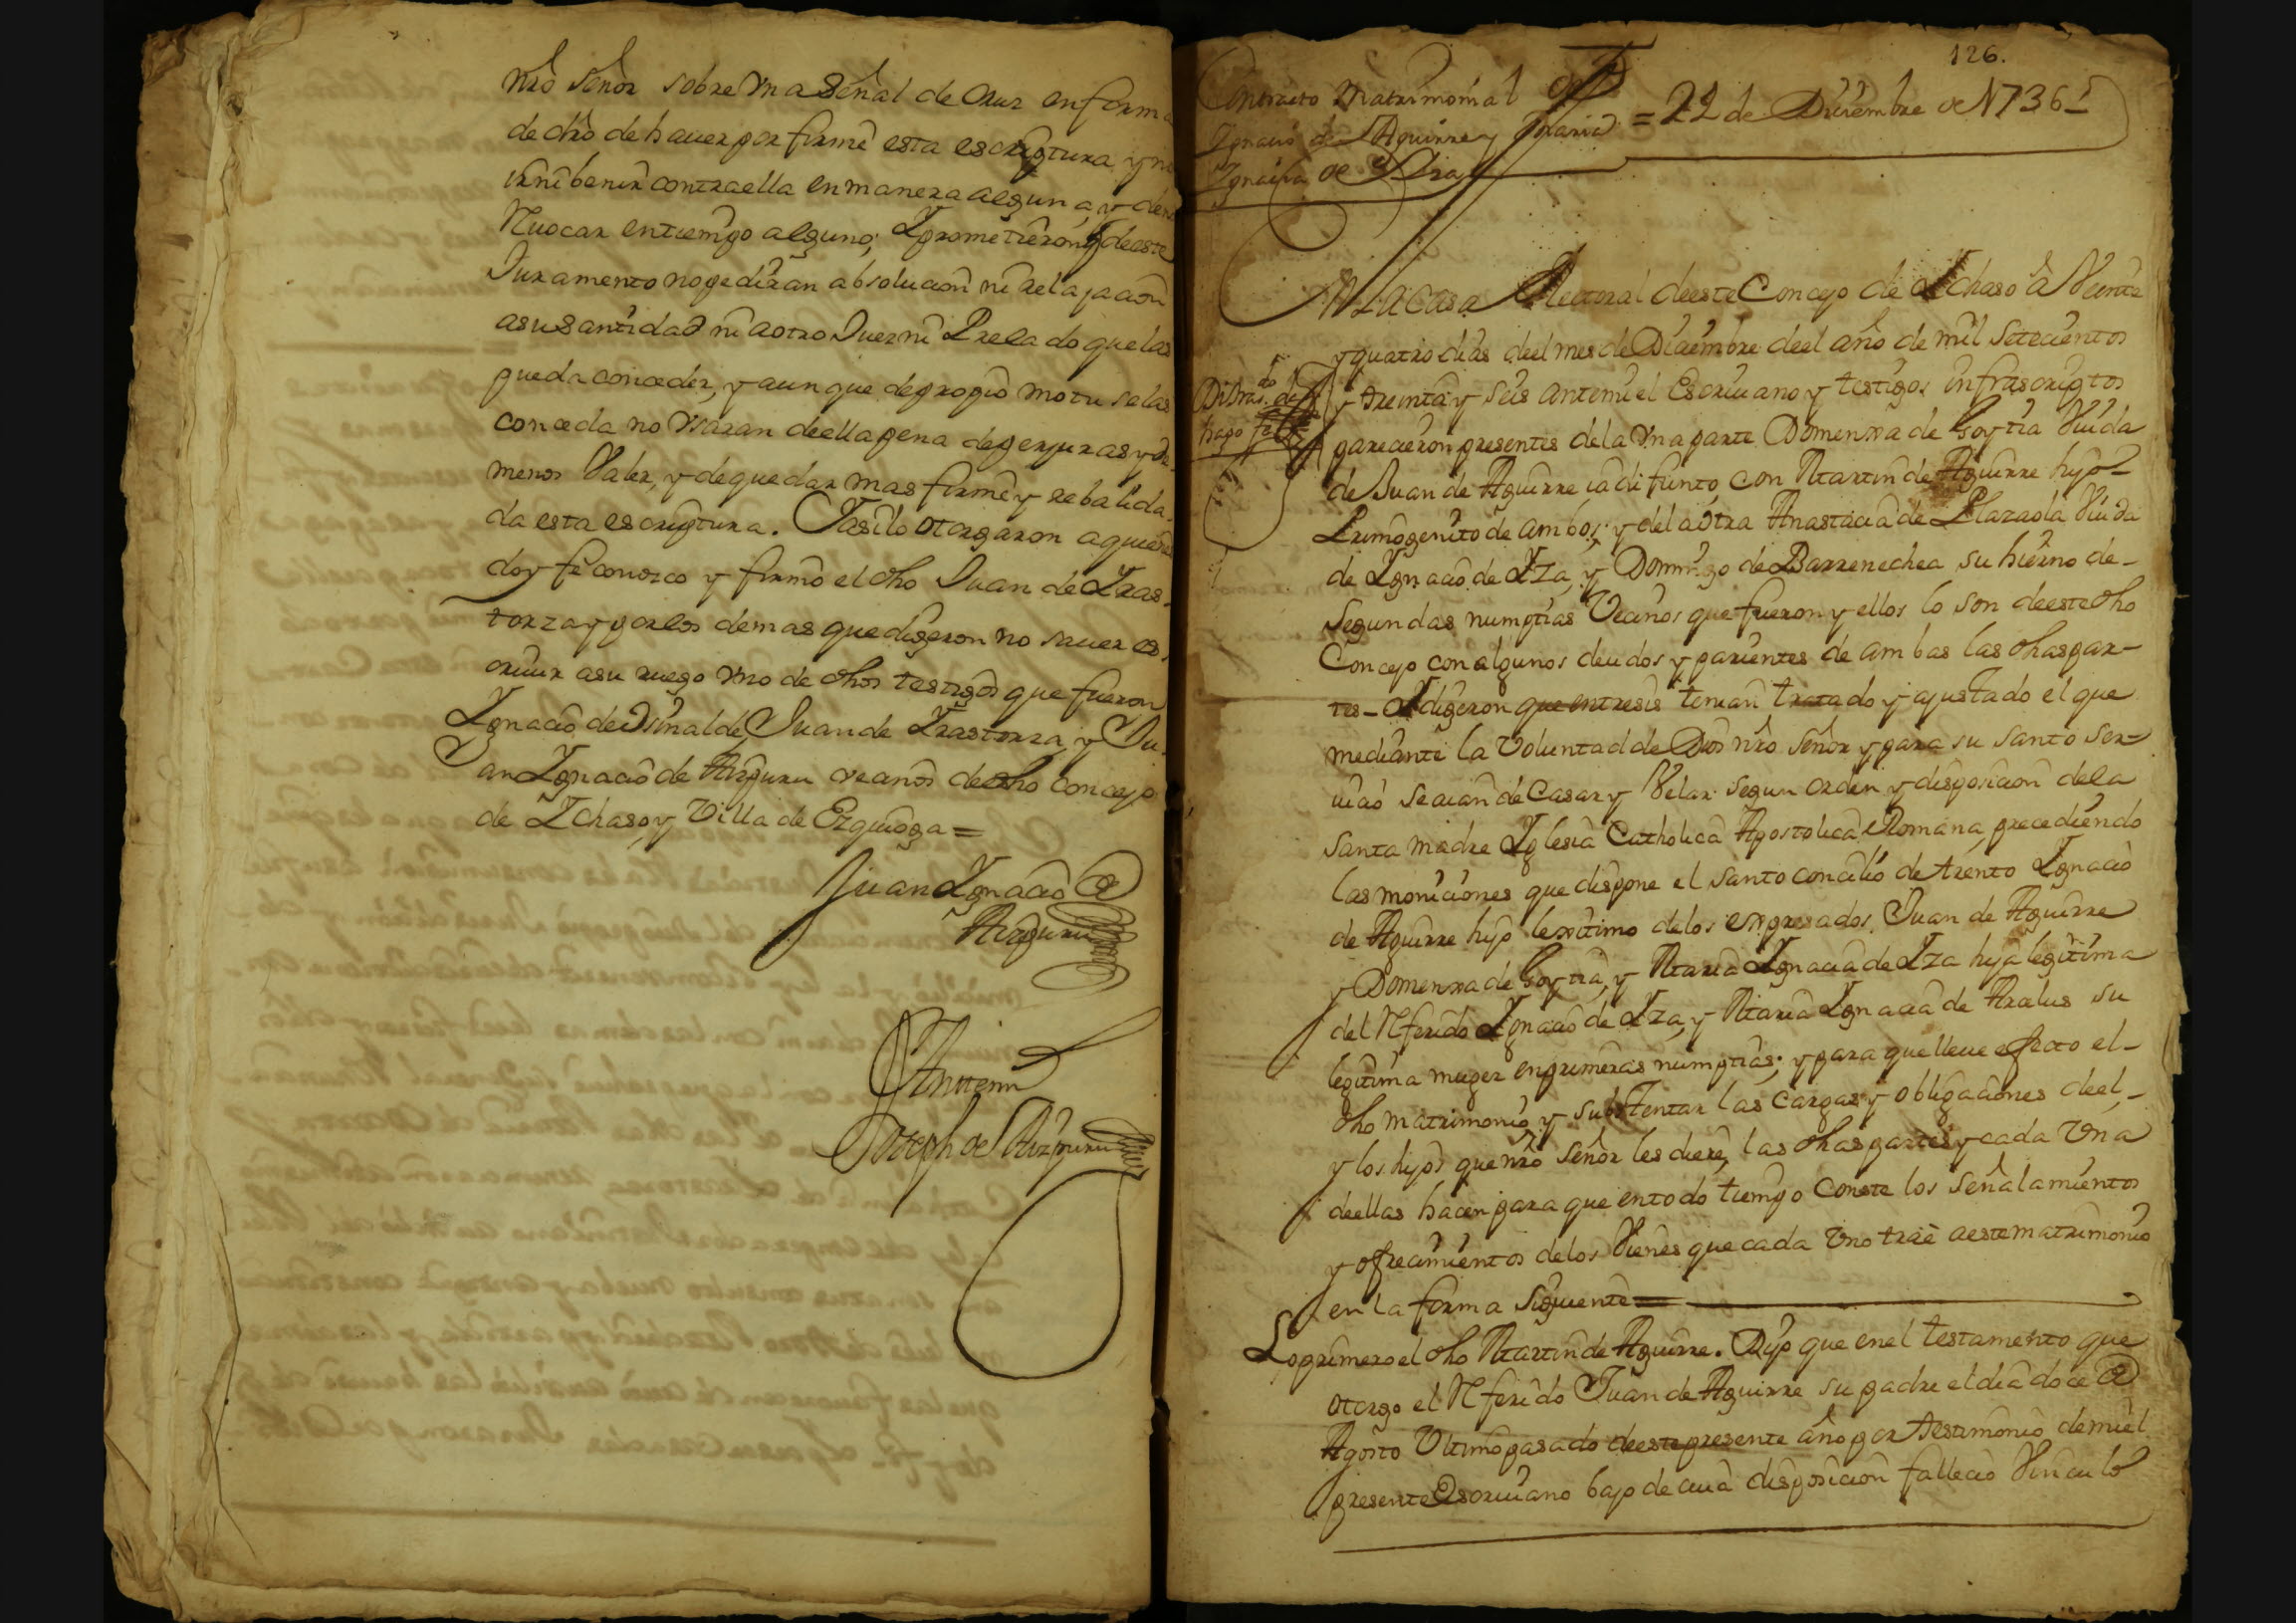 nrô Señor sobre Vna Señal de Cruz en forma
de dr̂o de hauer por firme esta escriptura y no
ir ni benir contra ella en manera alguna, y de no
Reuocar en tiempo alguno; Y prometieron q̂ de este
Juramento no pediran absolucion ni relajacion
a su Santidad ni a otro Juez ni Prelado que las
pueda conceder, y aunque de propio motu se las
conceda no Vsaran de ella pena de perjuras y de
menos Valer, y de quedar mas firme y rebalida-
da esta escriptura. Y asi lo otorgaron a quienes
doy fe conozco y firmó el dho Juan de Yras-
torza y por los demas que dijeron no sauer es-
criuir a su ruego Vno de dhos testigos que fueron
Ygnacio de Vinalde, Juan de Yrastorza, y Ju-
an Ygnacio de Aizpuru vecinos de dho Concejo
de Ychaso, y Villa de Ezquioga =
Juan Ygnacio de
Aizpuru
Antemi
Joseph de Aizpuru
126.
Contrato Matrimonial de
Ygnacio de Aguirre y Maria
Ygnacia de Yza
= 24 de Diziembre de 1736 =
En la Casa Rectoral de este Concejo de Ychaso â Veinte
y quatro dias de el mes de Diciembre de el año de mil Setecientos
y treinta y Seis ante mi el Escriuano y testigos infrascriptos
parecieron presentes de la Vna parte Domenxa de Goytia Viuda
de Juan de Aguirre ia difunto, con Martin de Aguirre hijo
Primogenito de ambos; y de la otra Anastacia de Plazaola Viuda
de Ygnacio de Yza, y Domingo de Barrenechea su hierno de-
Segundas numptias Vecinos que fueron y ellos lo son de este dho
Concejo con algunos deudos y parientes de ambas las dhas par-
tes- Y dijeron que entre sis tenian tratado y ajustado el que
mediante la Voluntad de Dios nrô Señor y para su Santo Ser-
uicio se aian de Casar y Velar segun orden y disposicion de la
Santa Madre Yglesia Catholica Apostolica Romana, precediendo
las moniciones que dispone el Santo Concilio de trento Ygnacio
de Aguirre hijo lexitimo de los expresados Juan de Aguirre
y Domenxa de Goytia, y Maria Ygnacia de Yza hija legitima
del Referido Ygnacio de Yza, y Maria Ygnacia de Arcelus su
legitima muger en primeras numptias; y para que lleue efecto el-
dho matrimonio y substentar las cargas y obligaciones de el,-
y los hijos que nrô Señor les diere, las dhas partes y cada Vna
de ellas hacen para que en todo tiempo Conste los Señalamientos
y ofrecimientos de los Vienes que cada Vno trae a este matrimonio
en la forma Siguiente =
Lo primero el dho Martin de Aguirre. Dijo que en el testamento que
otorgo el Referido Juan de Aguirre su padre el dia doce de
Agosto Vltimo pasado de este presente año por testimonio de mi el
presente Escriuano bajo de cuia disposicion fallecio Vinculo